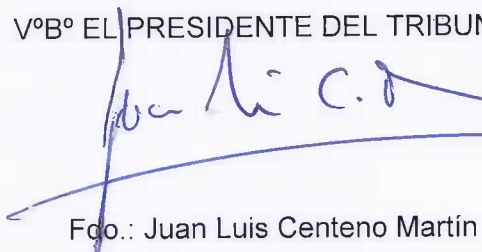 VºBº EL PRESIDENTE DEL TRIBUN
Juan Lui C.
Fdo.: Juan Luis Centeno Martín